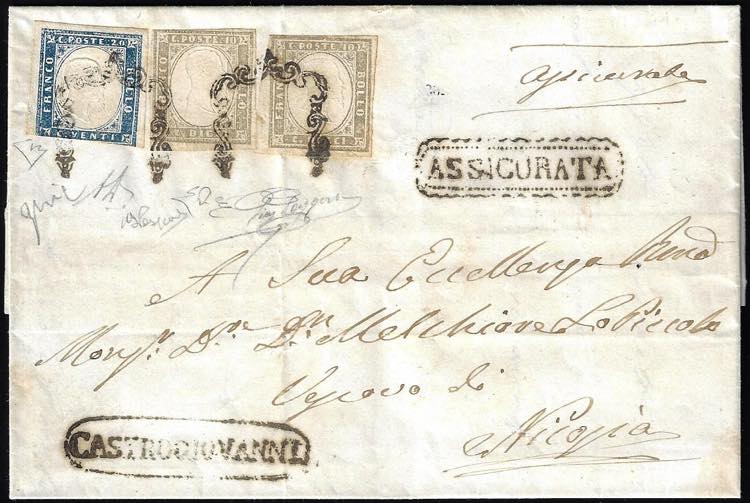 C. POSTE 20 FRANCO BOLLO C. VENTI
C. POSTE 10 FRANCO DIECI
C. POSTE 10 BOLLO
Assicurata
ASSICURATA
A Sua Eccellenza Rma
Monsr. Dre. Dn. Melchiorre Lo Piccolo
Vescovo di
Nicosia
CASTROGIOVANNI